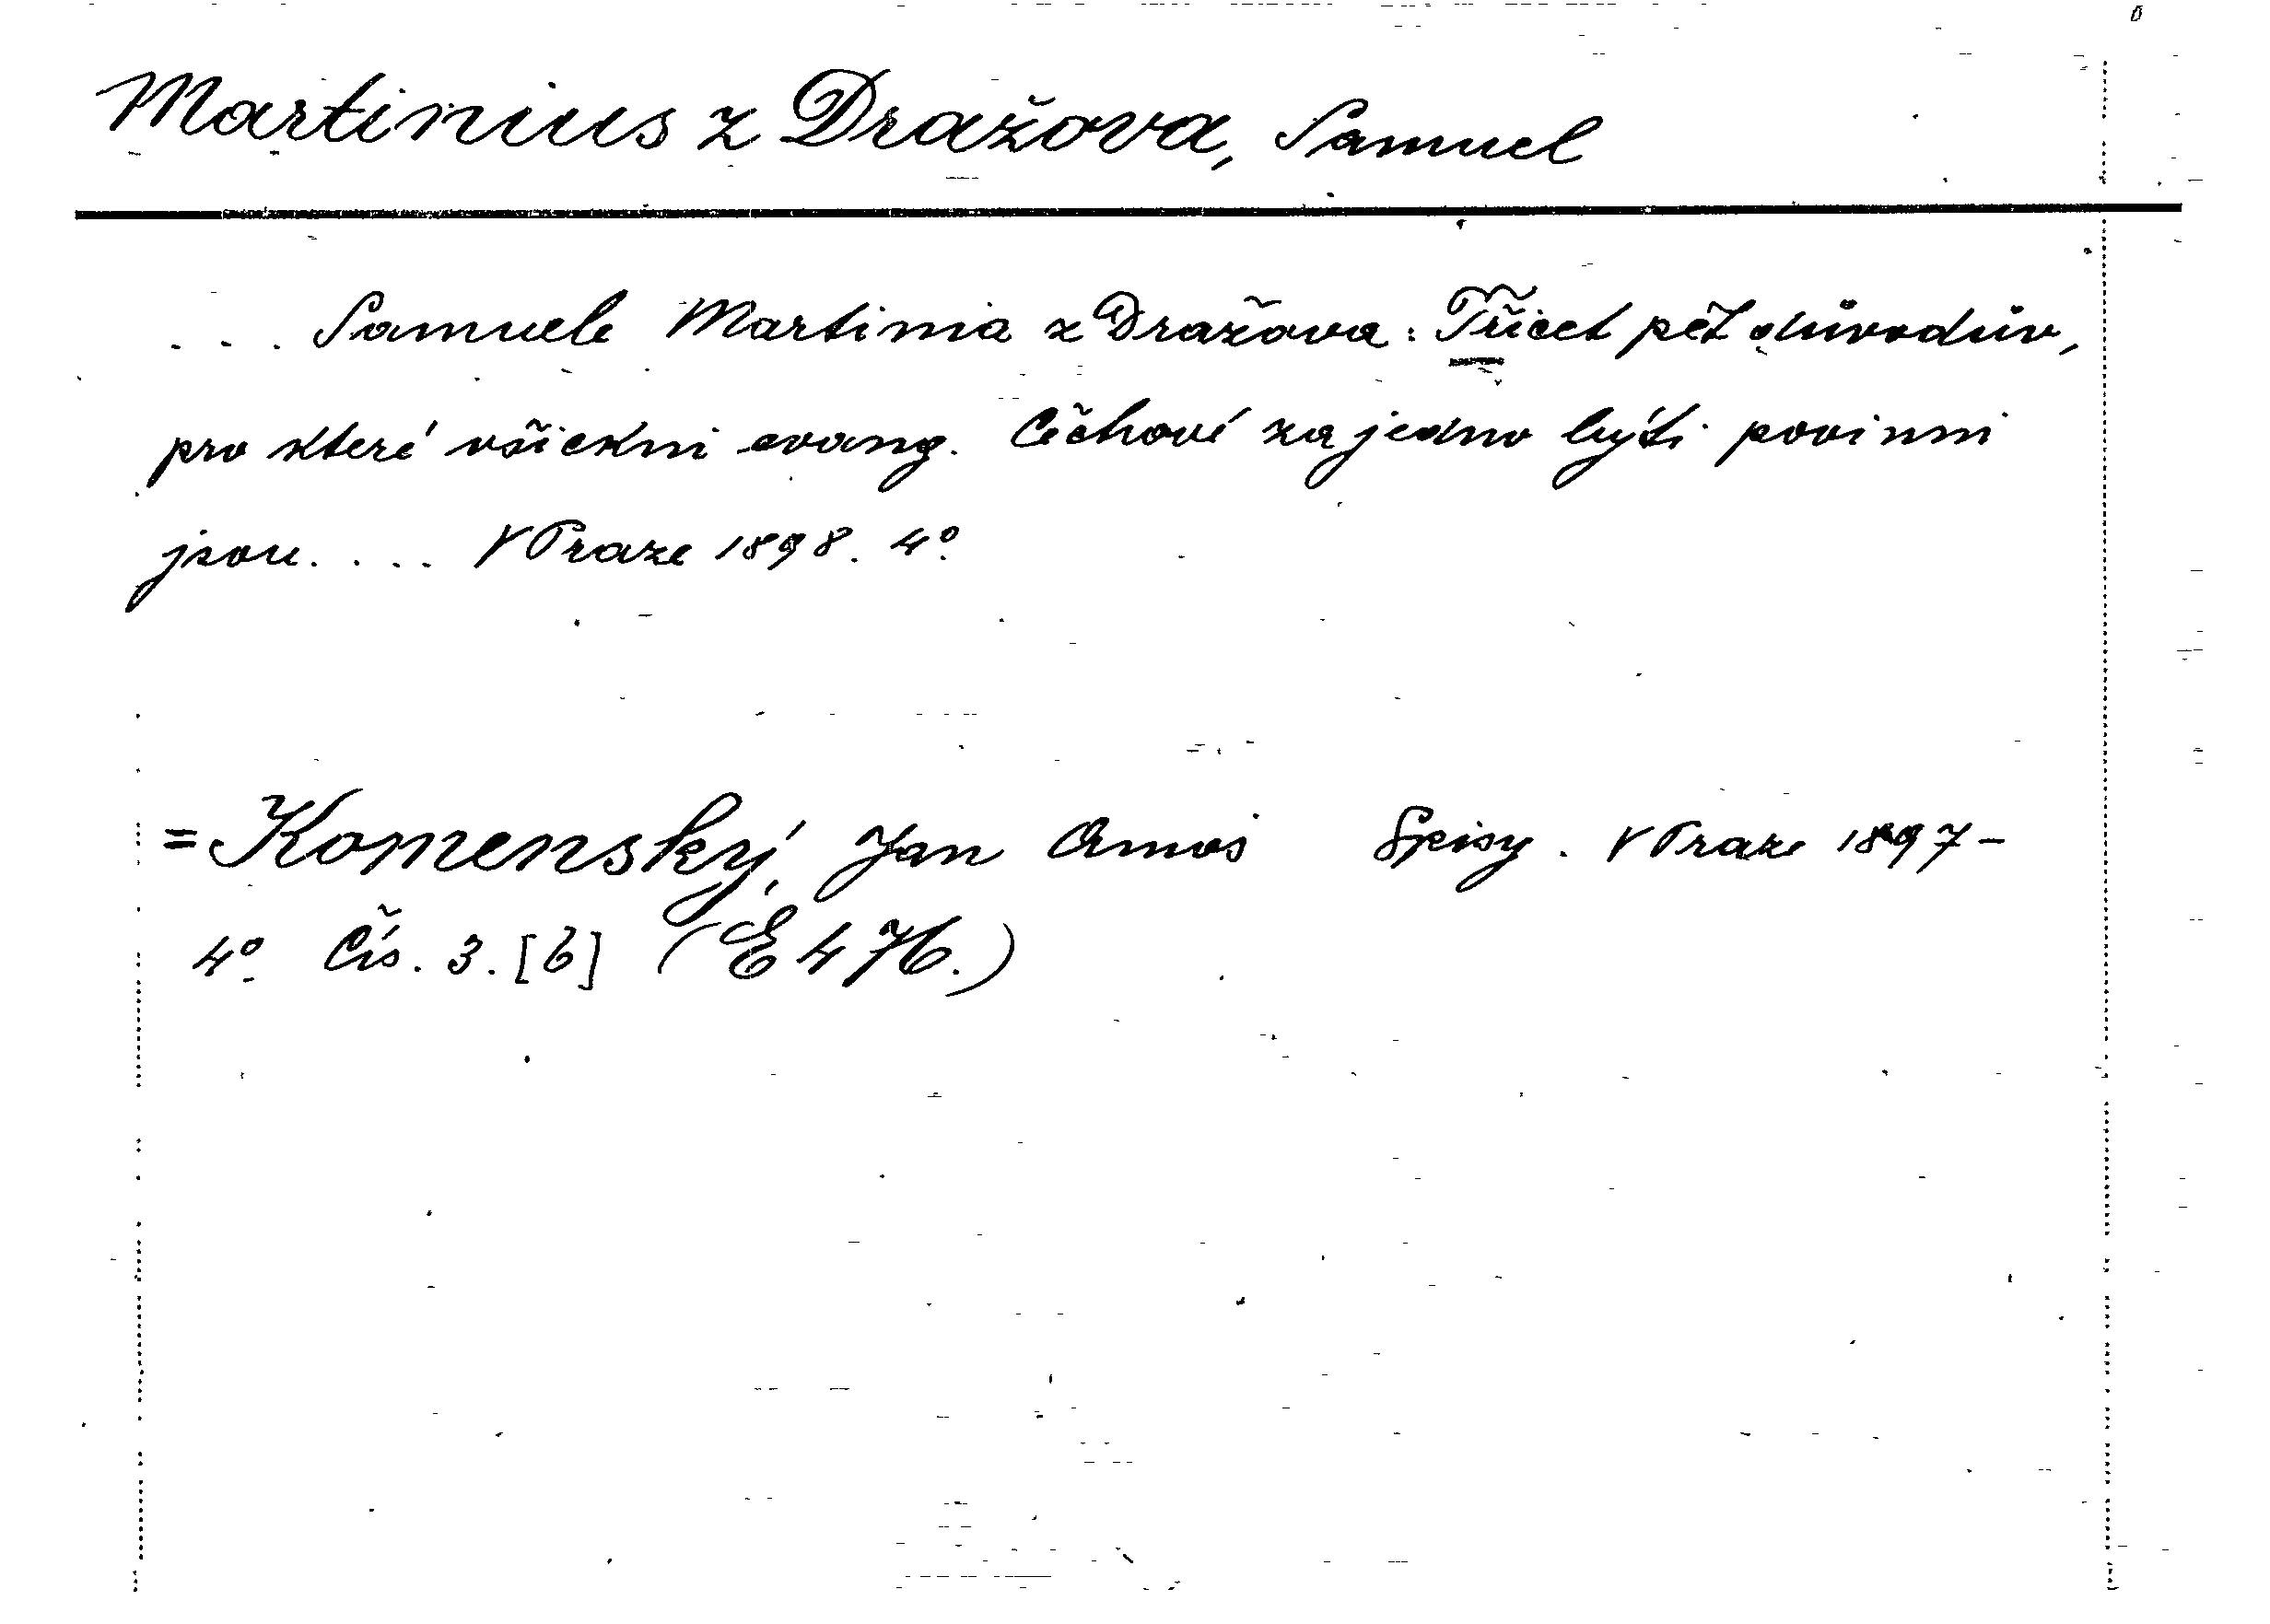 Martinius z Dražova, Samuel
... Samuele Martinia z Dražova: Třicet pět důvodův,
pro které všickni evang. Čechové za jedno býti povinni
jsou.... V Praze 1898. 4°.
= Komenský, Jan Amos Spisy. V Praze 1897-
4°. Čís. 3. [b] (E 476.)